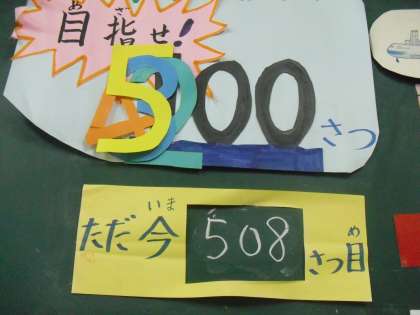 目指せ!
500さつ
ただ今 508 さつ目